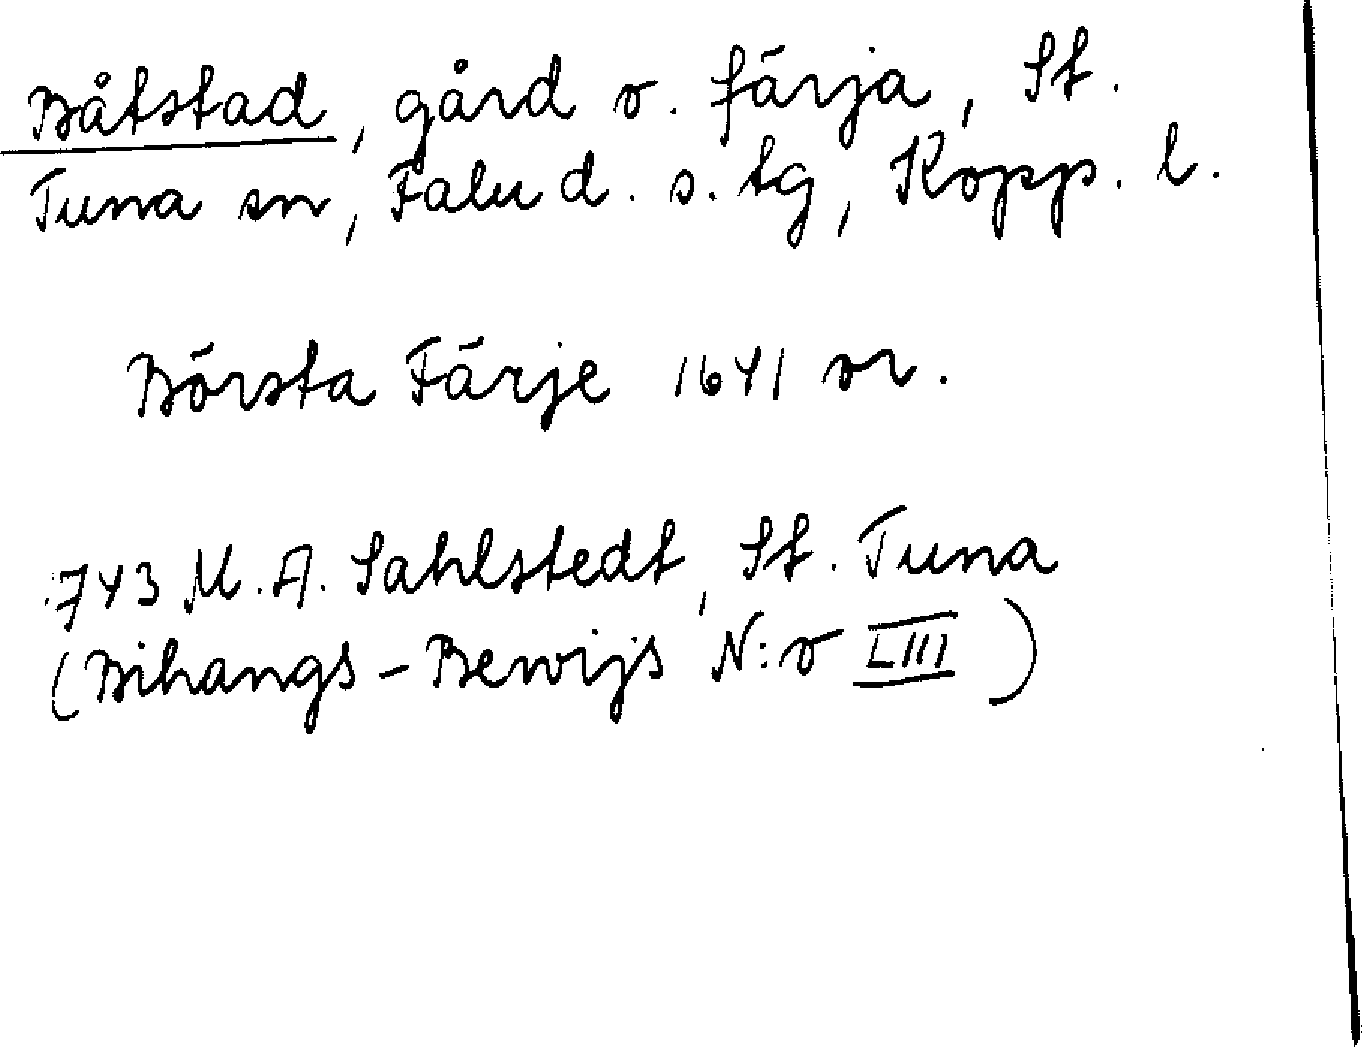 Båtstad, gård o. färja, St.
Tuna sn, Falu d. s. tg, Kopp. l.
Börsta Färje 1641 or.
1743 M. A. Sahlstedt, St. Tuna
(Bihangs-Bewijs N:o LIII)